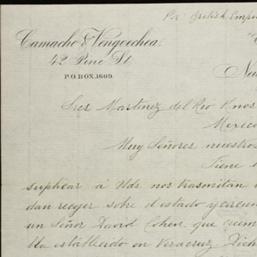 Pr British Empi
Camacho & Vengoechea.
42 Pine St
P.O. BOX.1609.
Sres Martinez del Rio Hnos
Mexico
Muy Señores nuestros
Tiene
suplicar á Uds nos trasmitan
dan recojer sobre el estado y
un Señor David Cohen que
establecido en Veracruz Dich